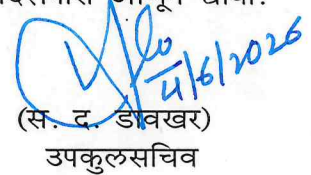 4/6/2026
(स. द. डावखर)
उपकुलसचिव